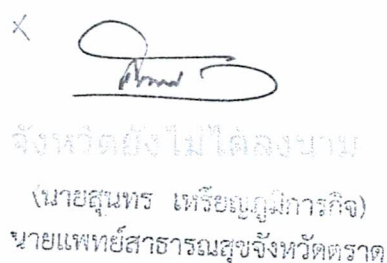 จังหวัดยังไม่ได้ลงนาม
(นายสุนทร เหรียญภูมิการกิจ)
นายแพทย์สาธารณสุขจังหวัดตราด